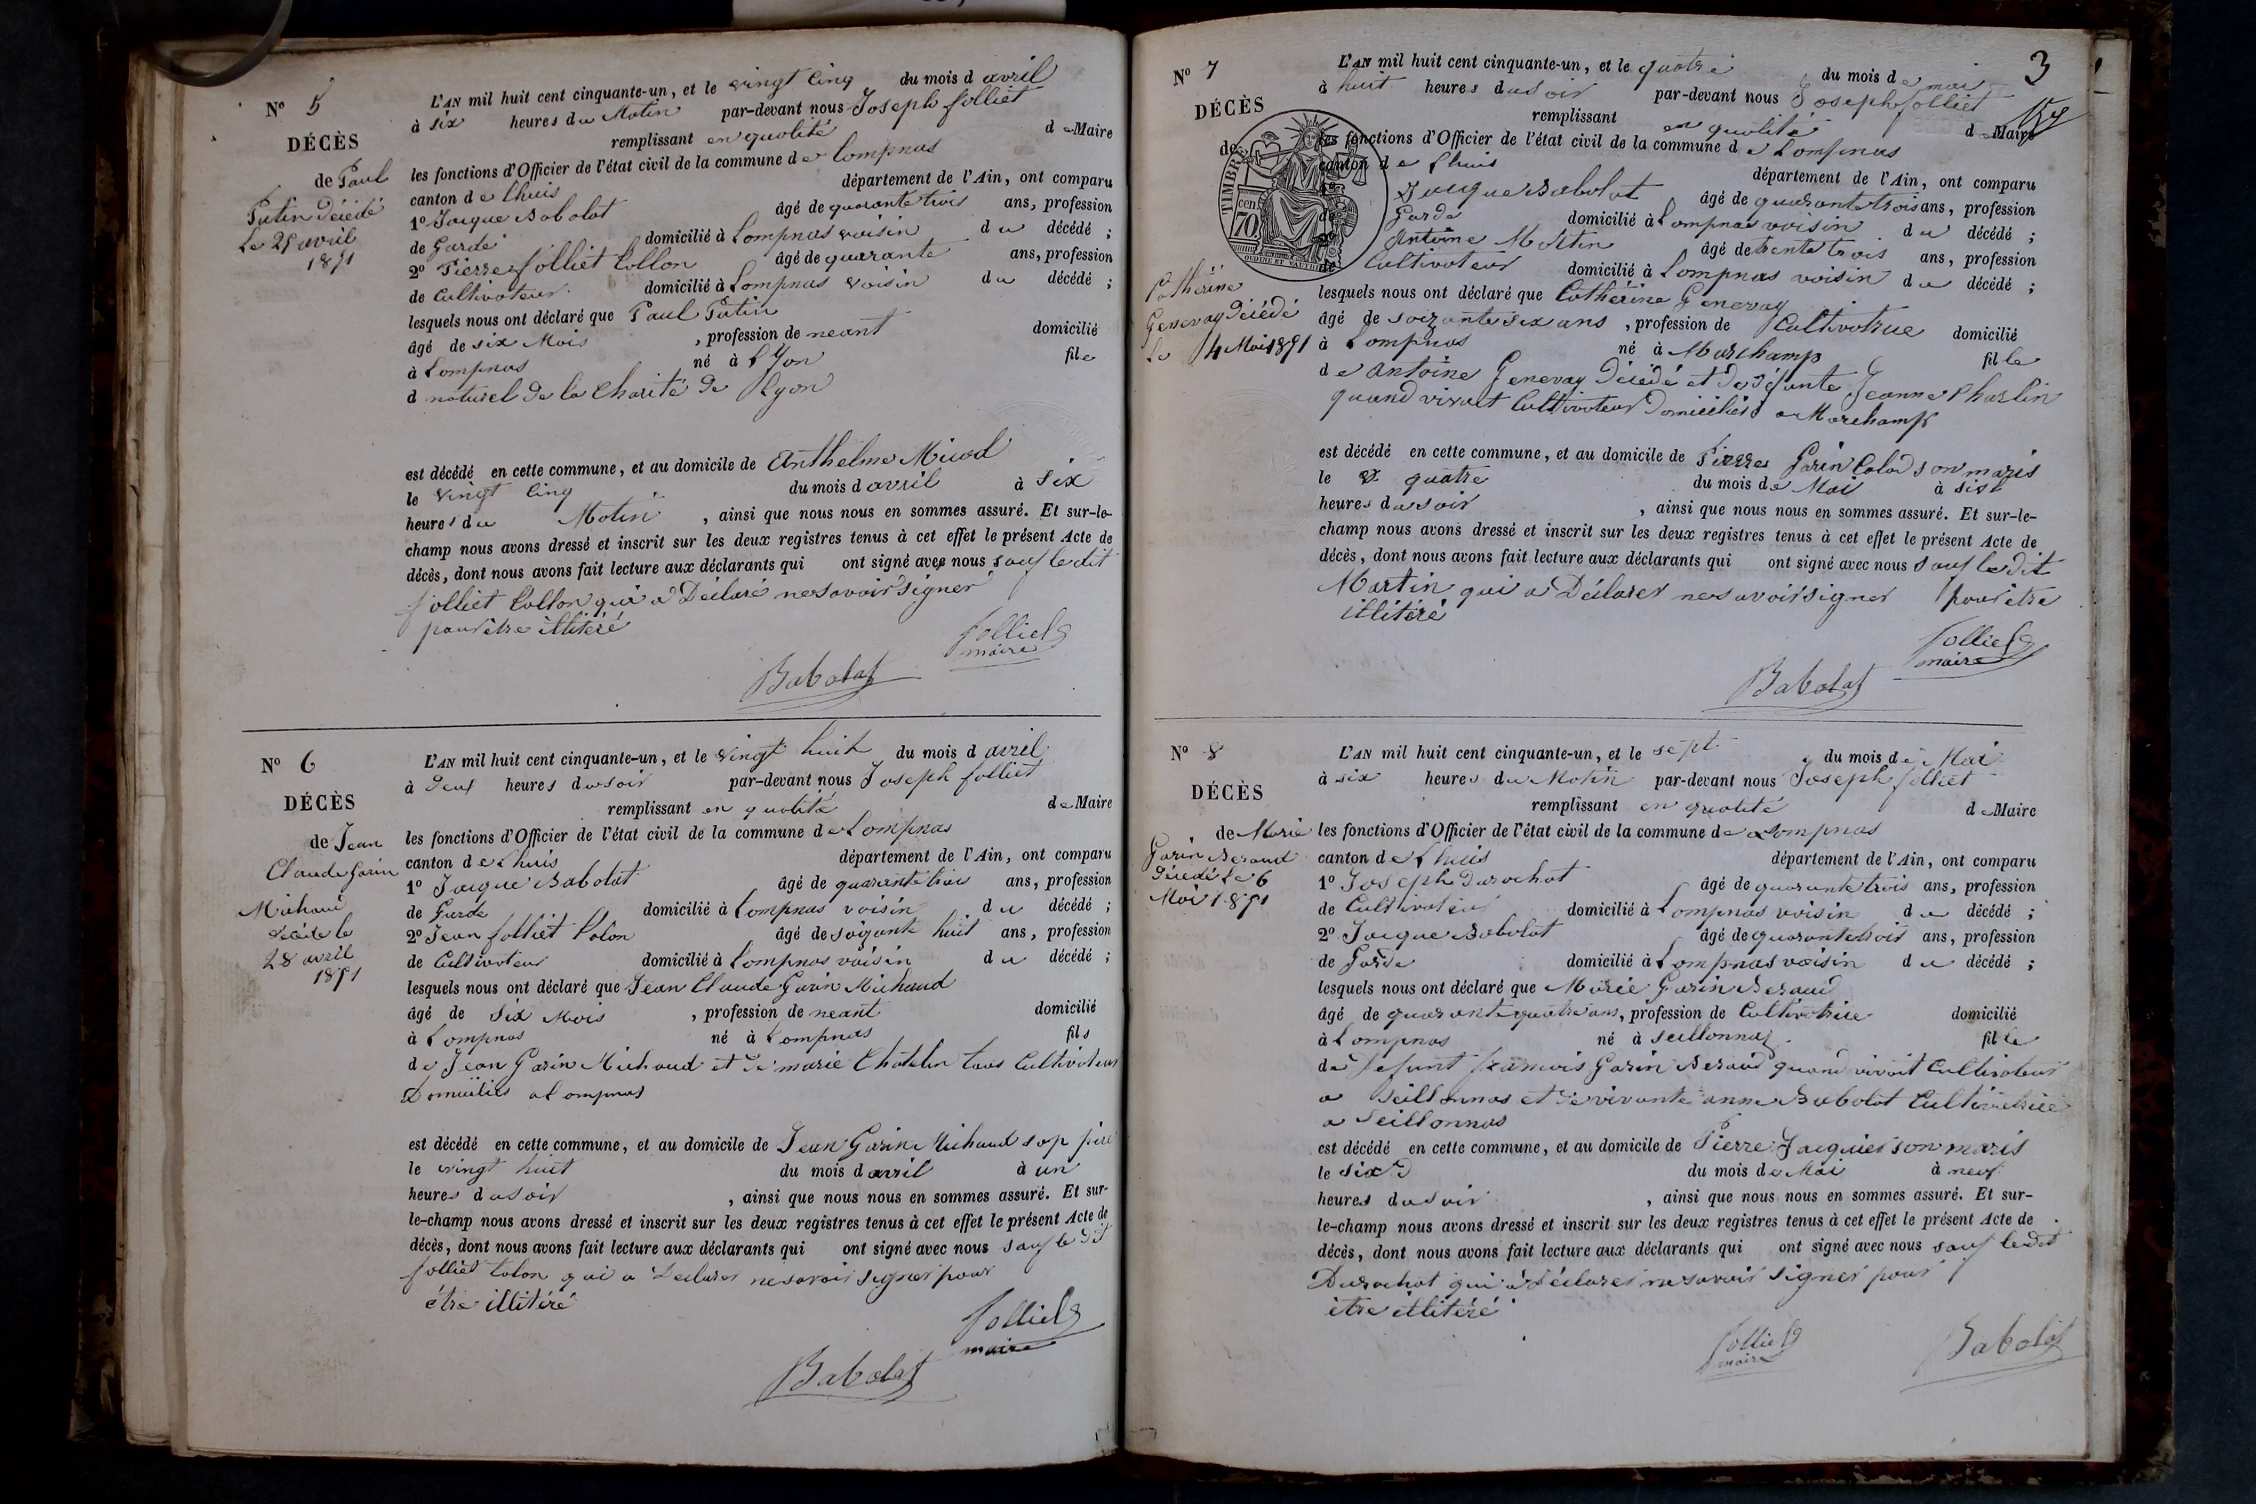 N° 5
DÉCÈS
de Paul
Putin décédé
le 25 avril
1851
L'AN mil huit cent cinquante-un, et le vingt cinq du mois d avril
à six heures du Matin par-devant nous Joseph folliet
remplissant en qualité de Maire
les fonctions d'Officier de l'état civil de la commune de Lompnas
canton de Lhuis département de l'Ain, ont comparu
1° Jacque Babolat âgé de quarante trois ans, profession
de Garde domicilié à Lompnas voisin du décédé ;
2° Pierre folliet Collon âgé de quarante ans, profession
de Cultivateur domicilié à Lompnas voisin du décédé ;
lesquels nous ont déclaré que Paul Putin
âgé de six Mois , profession de neant domicilié
à Lompnas né à Lyon fils
d naturel de la Charité de Lyon
est décédé en cette commune, et au domicile de Anthelme Micod
le vingt cinq du mois d avril à six
heures du Matin , ainsi que nous nous en sommes assuré. Et sur-le-
champ nous avons dressé et inscrit sur les deux registres tenus à cet effet le présent Acte de
décès, dont nous avons fait lecture aux déclarants qui ont signé avec nous sauf le dit
folliet Collon qui a Déclaré ne savoir signer
pour être illitéré
folliet
maire
Babolat
N° 6
DÉCÈS
de Jean
Claude Garin
Michaud
décédé le
28 avril
1851
L'AN mil huit cent cinquante-un, et le vingt huit du mois d avril
à deux heures du soir par-devant nous Joseph folliet
remplissant en qualité de Maire
les fonctions d'Officier de l'état civil de la commune de Lompnas
canton de Lhuis département de l'Ain, ont comparu
1° Jacque Babolat âgé de quarante trois ans, profession
de Garde domicilié à Lompnas voisin du décédé ;
2° Jean folliet Colon âgé de soixante huit ans, profession
de Cultivateur domicilié à Lompnas voisin du décédé ;
lesquels nous ont déclaré que Jean Claude Garin Michaud
âgé de six Mois , profession de neant domicilié
à Lompnas né à Lompnas fils
de Jean Garin Michaud et de marie Chatelin tous Cultivateurs
Domiciliés a Lompnas
est décédé en cette commune, et au domicile de Jean Garin Michaud son père
le vingt huit du mois d avril à un
heures du soir , ainsi que nous nous en sommes assuré. Et sur-
le-champ nous avons dressé et inscrit sur les deux registres tenus à cet effet le présent Acte de
décès, dont nous avons fait lecture aux déclarants qui ont signé avec nous sauf le dit
folliet Colon qui a déclarer ne savoir signer pour
être illitéré
folliet
maire
Babolat
3
N° 7
DÉCÈS
de
Catherine
Genevay décédé
Le 4 Mai 1851
TIMBRE
70 cen.
L'AN mil huit cent cinquante-un, et le quatre du mois de mai
à huit heures du soir par-devant nous Joseph folliet
remplissant en qualité de Maire
les fonctions d'Officier de l'état civil de la commune de Lompnas
canton de Lhuis département de l'Ain, ont comparu
Jacque Babolat âgé de quarante trois ans, profession
de Garde domicilié à Lompnas voisin du décédé ;
Antoine Martin âgé de trente trois ans, profession
de Cultivateur domicilié à Lompnas voisin du décédé ;
lesquels nous ont déclaré que Catherine Genevay
âgé de soixante six ans , profession de Cultivatrice domicilié
à Lompnas né à Marchamp fille
de Antoine Genevay décédé et de défunte Jeanne Charlin
quand vivait Cultivateur Domiciliés a Marchamp
est décédé en cette commune, et au domicile de Pierre Garin Colod son maris
le quatre du mois de Mai à six
heures du soir , ainsi que nous nous en sommes assuré. Et sur-le-
champ nous avons dressé et inscrit sur les deux registres tenus à cet effet le présent Acte de
décès, dont nous avons fait lecture aux déclarants qui ont signé avec nous sauf le dit
Martin qui a Déclarer ne savoir signer pour être
illitéré
folliet
maire
Babolat
N° 8
DÉCÈS
de Marie
Garin Beraud
décédé le 6
Mai 1851
L'AN mil huit cent cinquante-un, et le sept du mois de Mai
à six heures du Matin par-devant nous Joseph folliet
remplissant en qualité de Maire
les fonctions d'Officier de l'état civil de la commune de Lompnas
canton de Lhuis département de l'Ain, ont comparu
1° Joseph Durochat âgé de quarante trois ans, profession
de Cultivateur domicilié à Lompnas voisin du décédé ;
2° Jacque Babolat âgé de quarante trois ans, profession
de Garde domicilié à Lompnas voisin du décédé ;
lesquels nous ont déclaré que Marie Garin Beraud
âgé de quarante quatre ans, profession de Cultivatrice domicilié
à Lompnas né à Seillonnas fille
de Défunt francois Garin Beraud quand vivait Cultivateur
a Seillonnas et de vivante anne Babolat Cultivatrice
a Seillonnas
est décédé en cette commune, et au domicile de Pierre Jacquier son maris
le six du mois de Mai à neuf
heures du soir , ainsi que nous nous en sommes assuré. Et sur-
le-champ nous avons dressé et inscrit sur les deux registres tenus à cet effet le présent Acte de
décès, dont nous avons fait lecture aux déclarants qui ont signé avec nous sauf le dit
Durochat qui a déclarer ne savoir signer pour
être illitéré
folliet
maire
Babolat